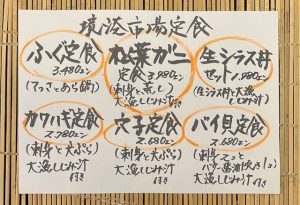 境港市場定食
ふぐ定食
3,480エン
(てっさとあら鍋)
松葉ガニ
定食 3,980エン
(刺身と蒸し)
大漁しじみ汁
付き
生シラス丼
セット 1,980エン
(生シラス丼と大漁
しじみ汁)
カワハギ定食
2,780エン
(刺身と天ぷら)
大漁しじみ汁
付き
穴子定食
2,680エン
(刺身と天ぷら)
大漁しじみ汁
付き
バイ貝定食
2,680エン
(刺身と
バター醤油焼き)
大漁しじみ汁
付き